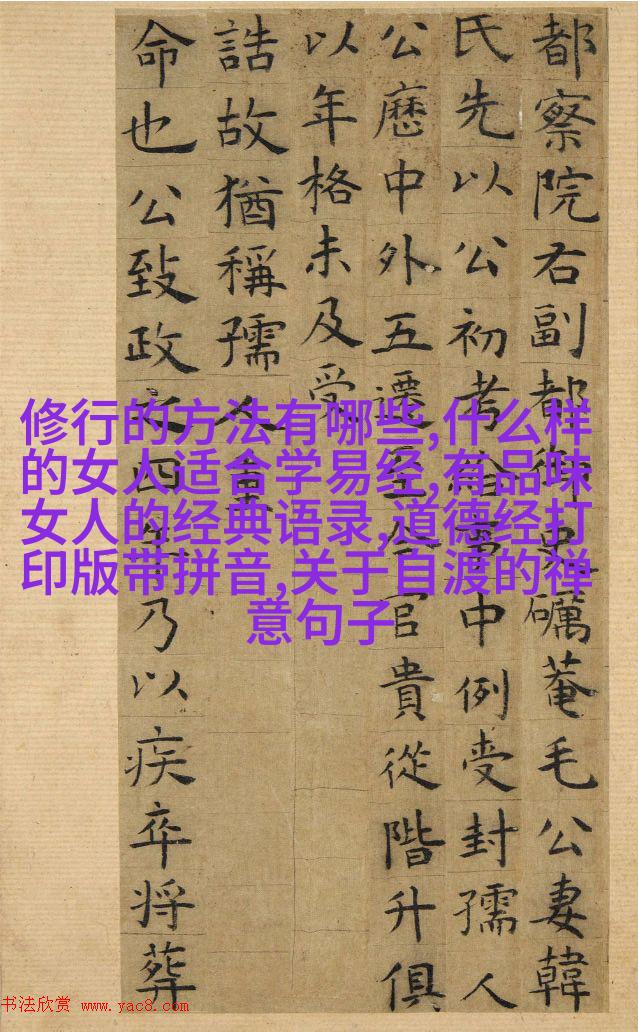 都察院右副都御史礪菴毛公妻韓
氏先以公初考給事中例受封孺人
公歷中外五遷至今官貴從階升俱
以年格未及受
誥故猶稱孺人重
命也公致政之四年乃以疾卒将葬
修行的方法有哪些,什么样
的女人适合学易经,有品味
女人的经典语录,道德经打
印版带拼音,关于自渡的禅
意句子
书法欣赏 www.yac8.com